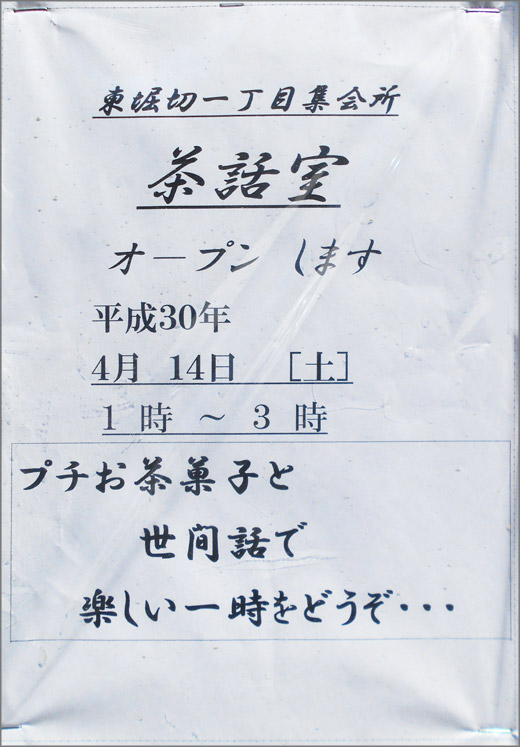 東堀切一丁目集会所
茶話室
オープン します
平成30年
4月 14日 [土]
1 時 ~ 3 時
プチお茶菓子と
世間話で
楽しい一時をどうぞ・・・